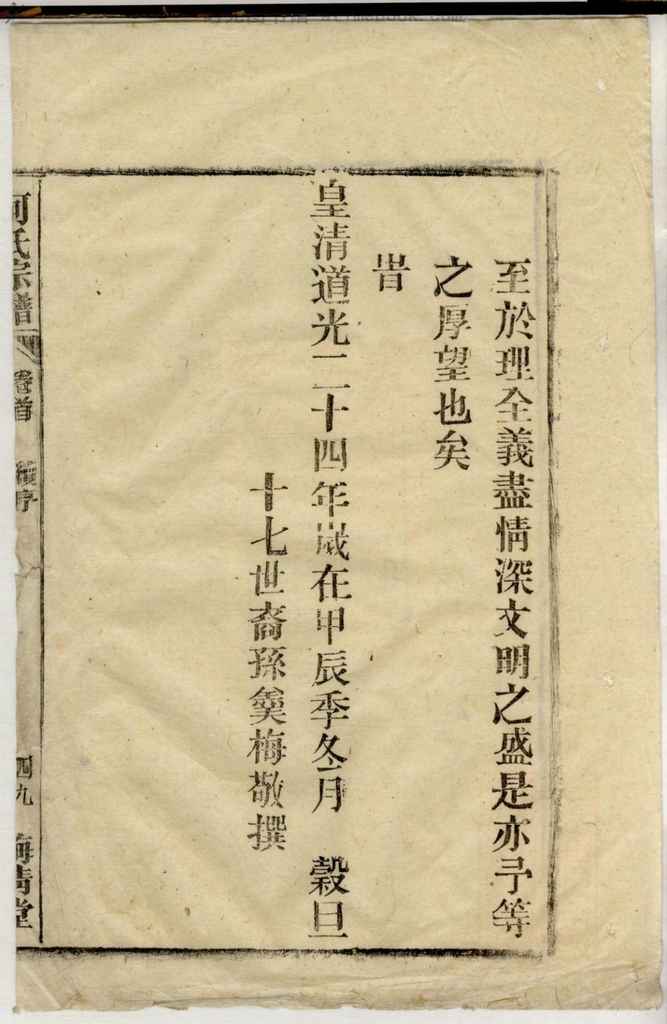 至於理全義盡情深文明之盛是亦予等
之厚望也矣
旹
皇清道光二十四年歲在甲辰季冬月 穀旦
十七世裔孫奠梅敬撰
何氏宗譜 卷首 續序 四九 梅靑堂